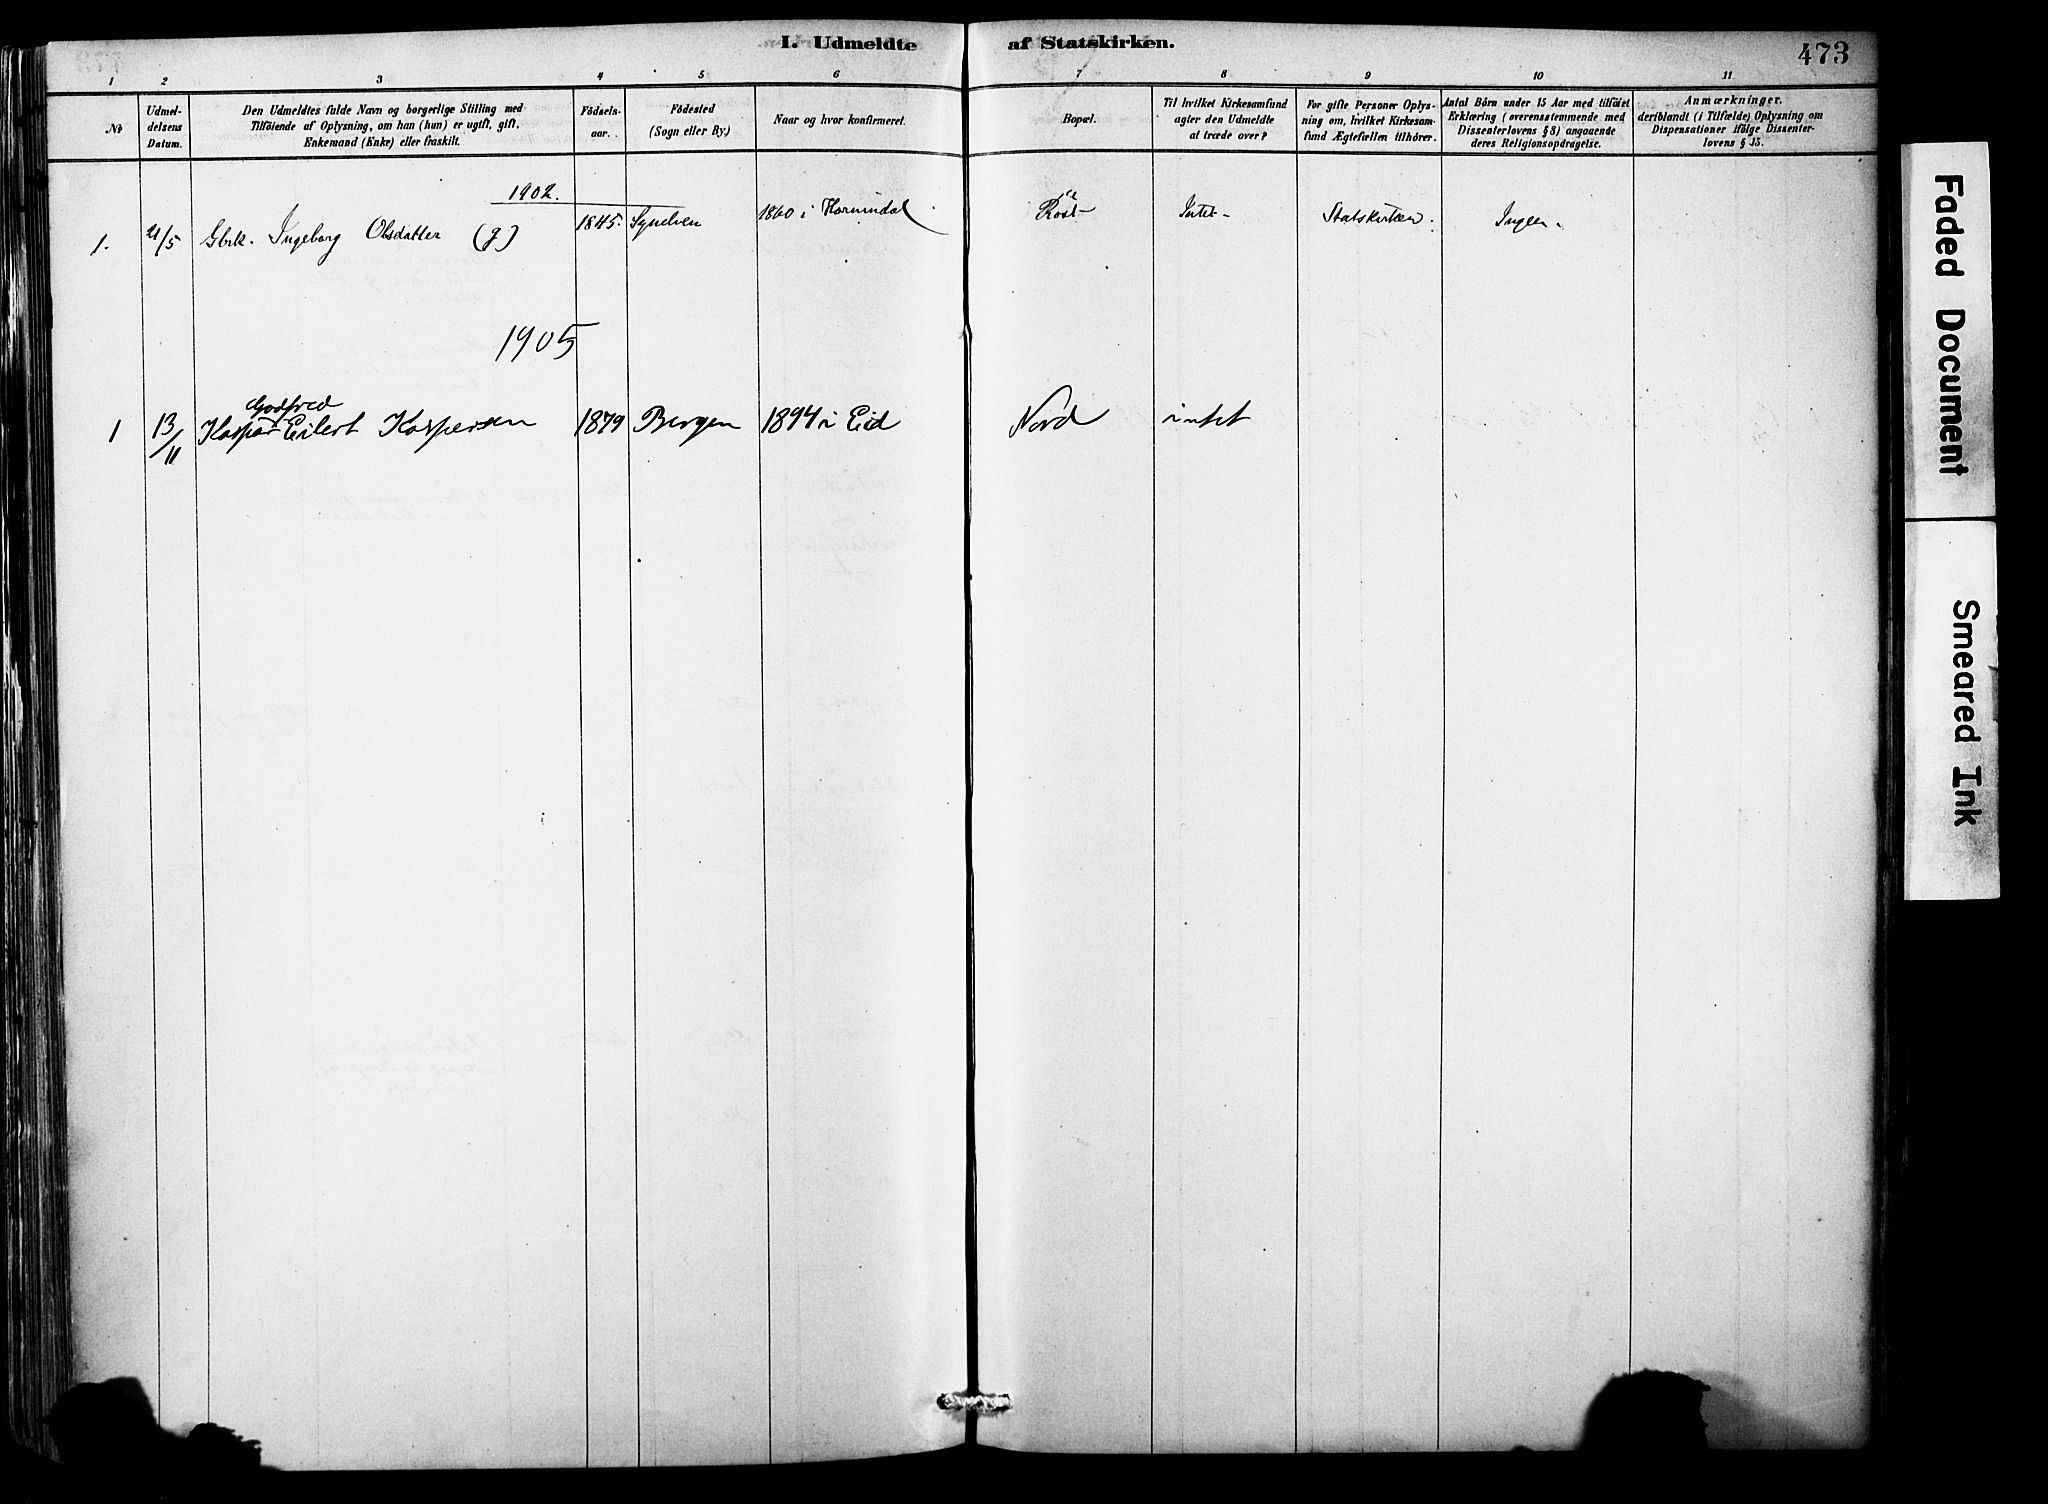 I. Udmeldte af Statskirken.
473
1 2 3 4 5 6 7 8 9 10 11
No
Udmel-
delsens
Datum.
Den Udmeldtes fulde Navn og borgerlige Stilling med
Tilföiende af Oplysning, om han (hun) er ugift, gift,
Enkemand (Enke) eller fraskilt.
Födsels-
aar.
Födested
(Sogn eller By)
Naar og hvor konfirmeret.
Bopæl.
Til hvilket Kirkesamfund
agter den Udmeldte
at træde over?
For gifte Personer Oplys-
ning om, hvilket Kirkesam-
fund Ægtefællen tilhörer.
Antal Börn under 15 Aar med tilföiet
Erklæring (overensstemmende med
Dissenterlovens § 8) angaaende
deres Religionsopdragelse.
Anmærkninger,
deriblandt (i Tilfælde) Oplysning om
Dispensationer ifölge Dissenter-
lovens § 15.
1902.
1. 21/5 Gbrk. Ingeborg Olsdatter (g) 1845. 1860 i Hornindal Intet - Statskirken. Ingen.
1905
Godfred
1 13/11 Kaspar Eilert Kaspersen 1879 Bergen 1894 i Eid Nord intet
Faded Document
Smeared Ink